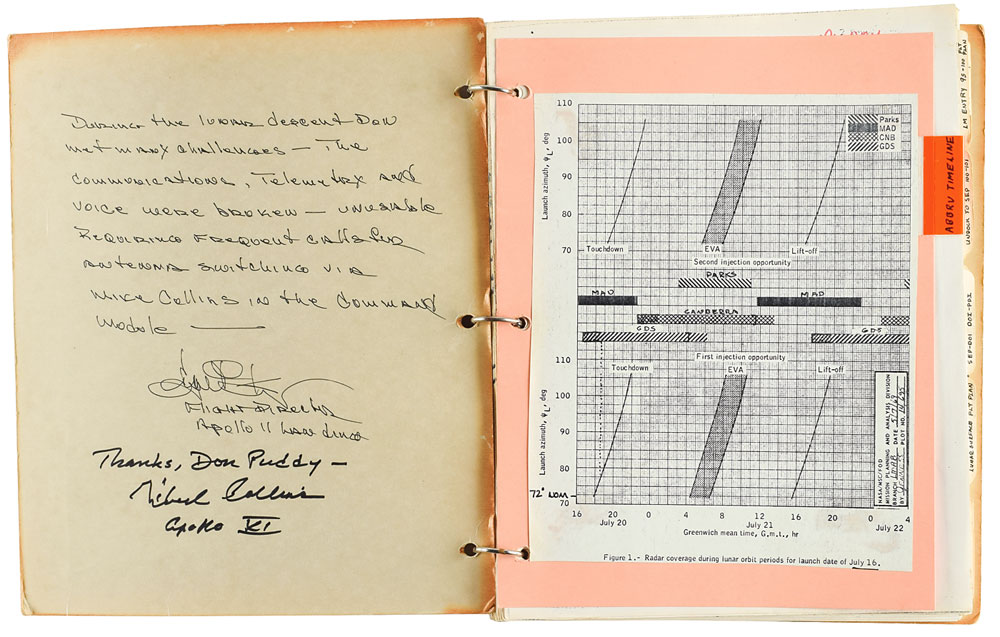 During the lunar descent Don
met many challenges — The
communications, Telemetry and
voice were broken — unusable
Requiring frequent calls for
antenna switching via
Mike Collins in the Command
Module —
Flight Director
Apollo 11 Landing
Thanks, Don Puddy —
Michael Collins
Apollo XI
110
100
90
80
70
Launch azimuth, ψL, deg
Parks
MAD
CNB
GDS
Touchdown
EVA
Lift-off
Second injection opportunity
PARKS
MAD
MAD
CANBERRA
GDS
GDS
First injection opportunity
Touchdown
EVA
Lift-off
110
100
90
80
72° NOM
70
Launch azimuth, ψL, deg
NASA/MSC/FOD
MISSION PLANNING AND ANALYSIS DIVISION
BRANCH LMAB DATE
BY PLOT NO.
16 20 0 4 8 12 16 20 0 4
July 20 July 21 July 22
Greenwich mean time, G.m.t., hr
Figure 1.- Radar coverage during lunar orbit periods for launch date of July 16.
ABBRV TIMELINE
FLT PLAN
LM ENTRY 95-100
UNDOCK TO SEP 100-101
SEP-DOI DOI-PDI
LUNAR SURFACE FLT PLAN